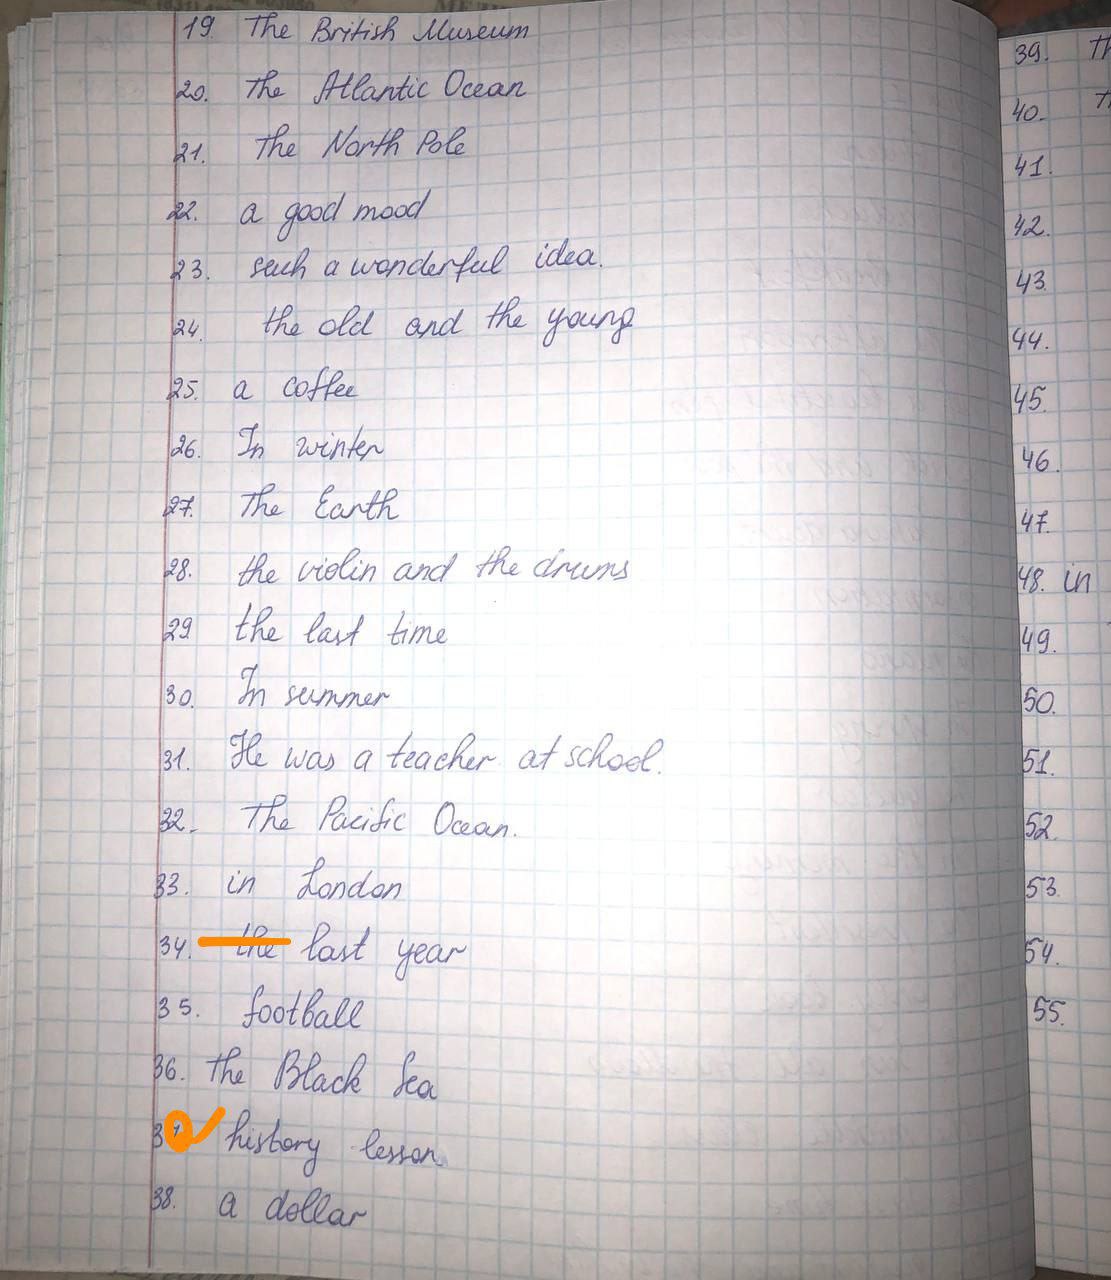 19. The British Museum
20. The Atlantic Ocean
21. The North Pole
22. a good mood
23. such a wonderful idea.
24. the old and the young
25. a coffee
26. In winter
27. The Earth
28. the violin and the drums
29 the last time
30. In summer
31. He was a teacher at school.
32. The Pacific Ocean.
33. in London
34. the last year
35. football
36. the Black Sea
37 a history lesson.
38. a dollar
39. Th
40. T
41.
42.
43.
44.
45.
46.
47.
48. in
49.
50.
51.
52.
53.
54.
55.